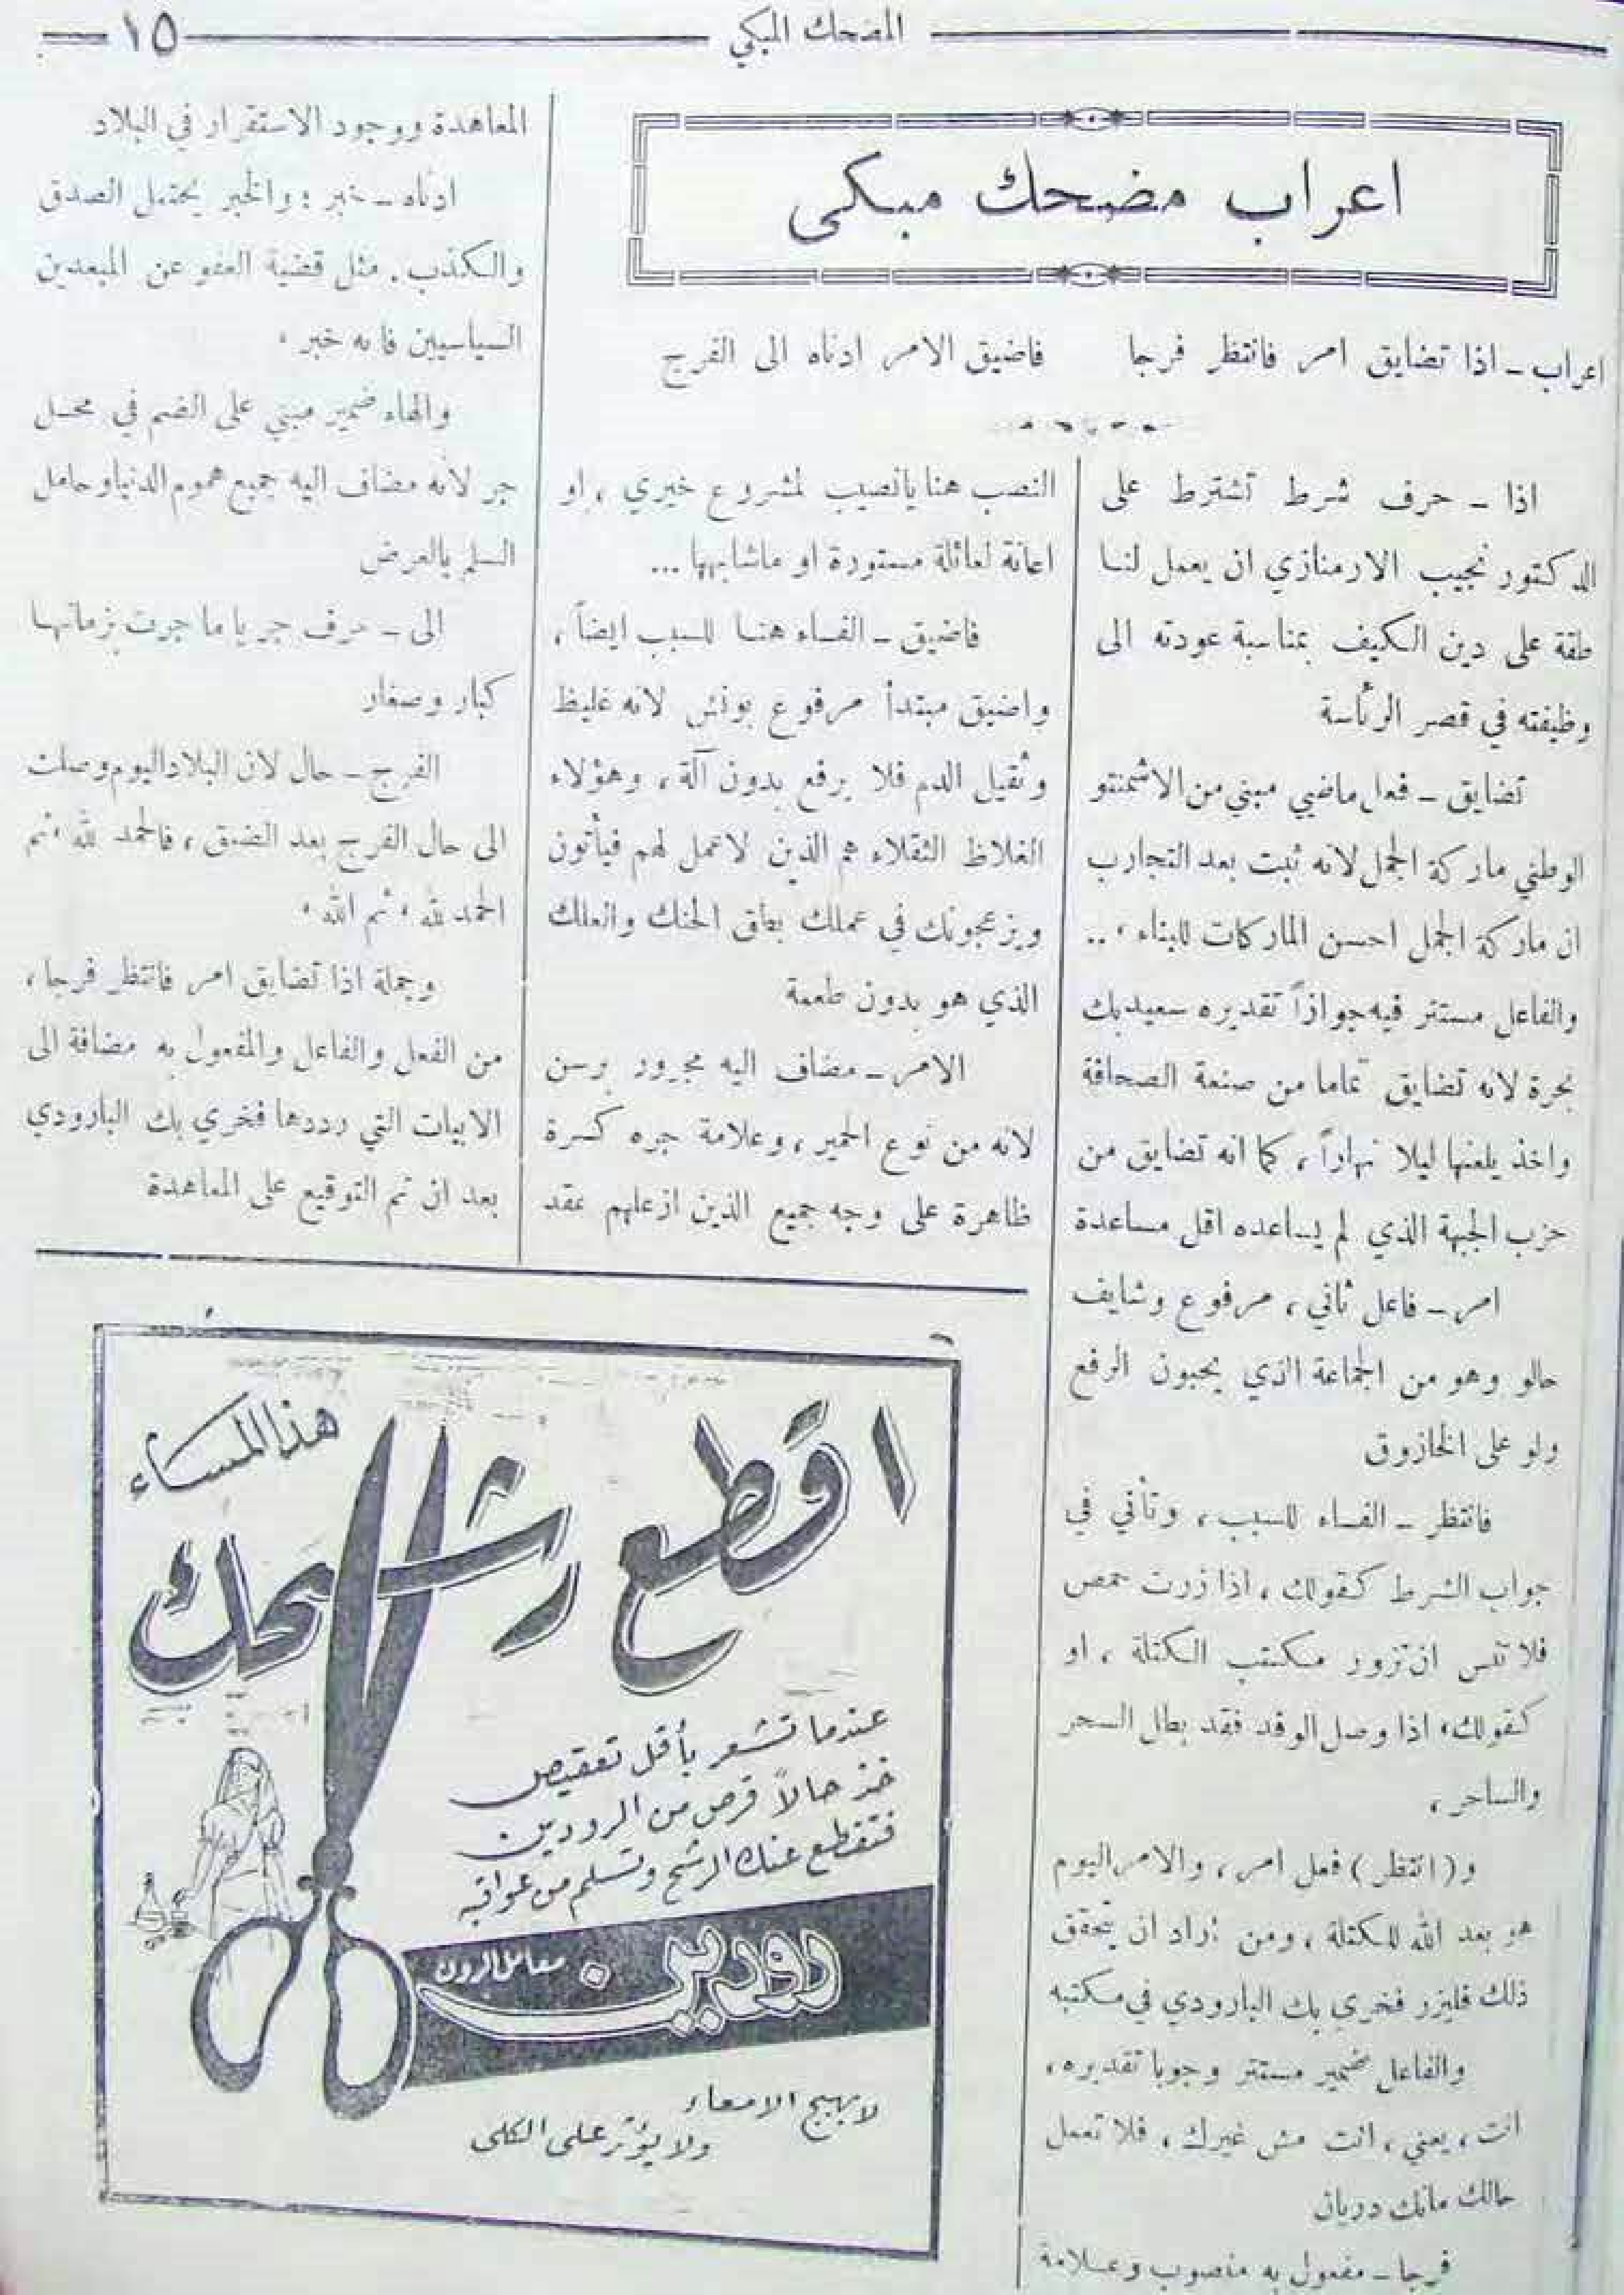 المضحك المبكي
١٥
اعراب مضحك مبكى
اعراب ـ اذا تضايق امر فانتظر فرجا    فاضيق الامر ادناه الى الفرج
اذا ـ حرف شرط تشترط على
الدكتور نجيب الارمنازي ان يعمل لنا
طقة على دين الكيف بمناسبة عودته الى
وظيفته في قصر الرئاسة
تضايق ـ فعل ماضي مبني من الاشمنتو
الوطني ماركة الجمل لانه ثبت بعد التجارب
ان ماركة الجمل احسن الماركات للبناء ،..
والفاعل مستتر فيه جوازاً تقديره سعيد بك
بحرة لانه تضايق تماما من صنعة الصحافة
واخذ يلعنها ليلا نهاراً ، كما انه تضايق من
حزب الجبهة الذي لم يساعده اقل مساعدة
امر ـ فاعل ثاني ، مرفوع وشايف
حالو وهو من الجماعة الذي يحبون الرفع
ولو على الخازوق
فانتظر ـ الفاء للسبب ، وتأتي في
جواب الشرط كقولك ، اذا زرت حمص
فلا تنس ان تزور مكتب الكتلة ، او
كقولك، اذا وصل الوفد فقد بطل السحر
والساحر ،
و( انتظر ) فعل امر ، والامر اليوم
هو بعد الله للكتلة ، ومن أراد ان يتحقق
ذلك فليزر فخري بك البارودي في مكتبه
والفاعل ضمير مستتر وجوبا تقديره ،
انت ، يعني ، انت مش غيرك ، فلا تعمل
حالك مانك دريان
فرجا ـ مفعول به منصوب وعلامة
النصب هنا يانصيب لمشروع خيري ، او
اعانة لعائلة مستورة او ماشابهها ...
فاضيق ـ الفاء هنا للسبب ايضاً ،
واضيق مبتدأ مرفوع بونش لانه غليظ
وثقيل الدم فلا يرفع بدون آلة ، وهؤلاء
الغلاظ الثقلاء هم الذين لاعمل لهم فيأتون
ويزعجونك في عملك بعلق الحنك والعلك
الذي هو بدون طعمة
الامر ـ مضاف اليه مجرور برسن
لانه من نوع الحمير ، وعلامة جره كسرة
ظاهرة على وجه جميع الذين ازعلهم عقد
المعاهدة ووجود الاستقرار في البلاد
ادناه ـ خبر ؛ والخبر يحتمل الصدق
والكذب . مثل قضية العفو عن المبعدين
السياسيين فانه خبر ،
والهاء ضمير مبني على الضم في محل
جر لانه مضاف اليه جميع هموم الدنيا وحامل
السلم بالعرض
الى ـ حرف جر ياما جرت بزمانها
كبار وصغار
الفرج ـ حال لان البلاد اليوم وصلت
الى حال الفرج بعد الضيق ، فالحمد لله ، ثم
الحمد لله ، ثم الله ،
وجملة اذا تضايق امر فانتظر فرجا ،
من الفعل والفاعل والمفعول به مضافة الى
الابيات التي رددها فخري بك البارودي
بعد ان تم التوقيع على المعاهدة
اقطع رشحك
هذا المساء
عندما تشعر بأقل تعقيص
خذ حالاً قرص من الرودين
فتقطع عنك الرشح وتسلم من عواقبه
رودين
معامل الرون
لا يهيج الامعاء
ولا يؤثر على الكلى